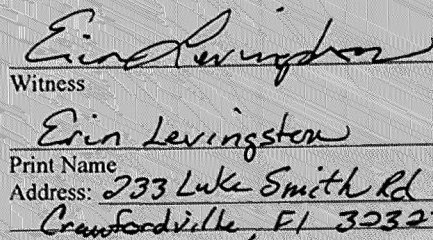 Erin Levingston
Witness
Erin Levingston
Print Name
Address: 233 Luke Smith Rd
Crawfordville, Fl 3232